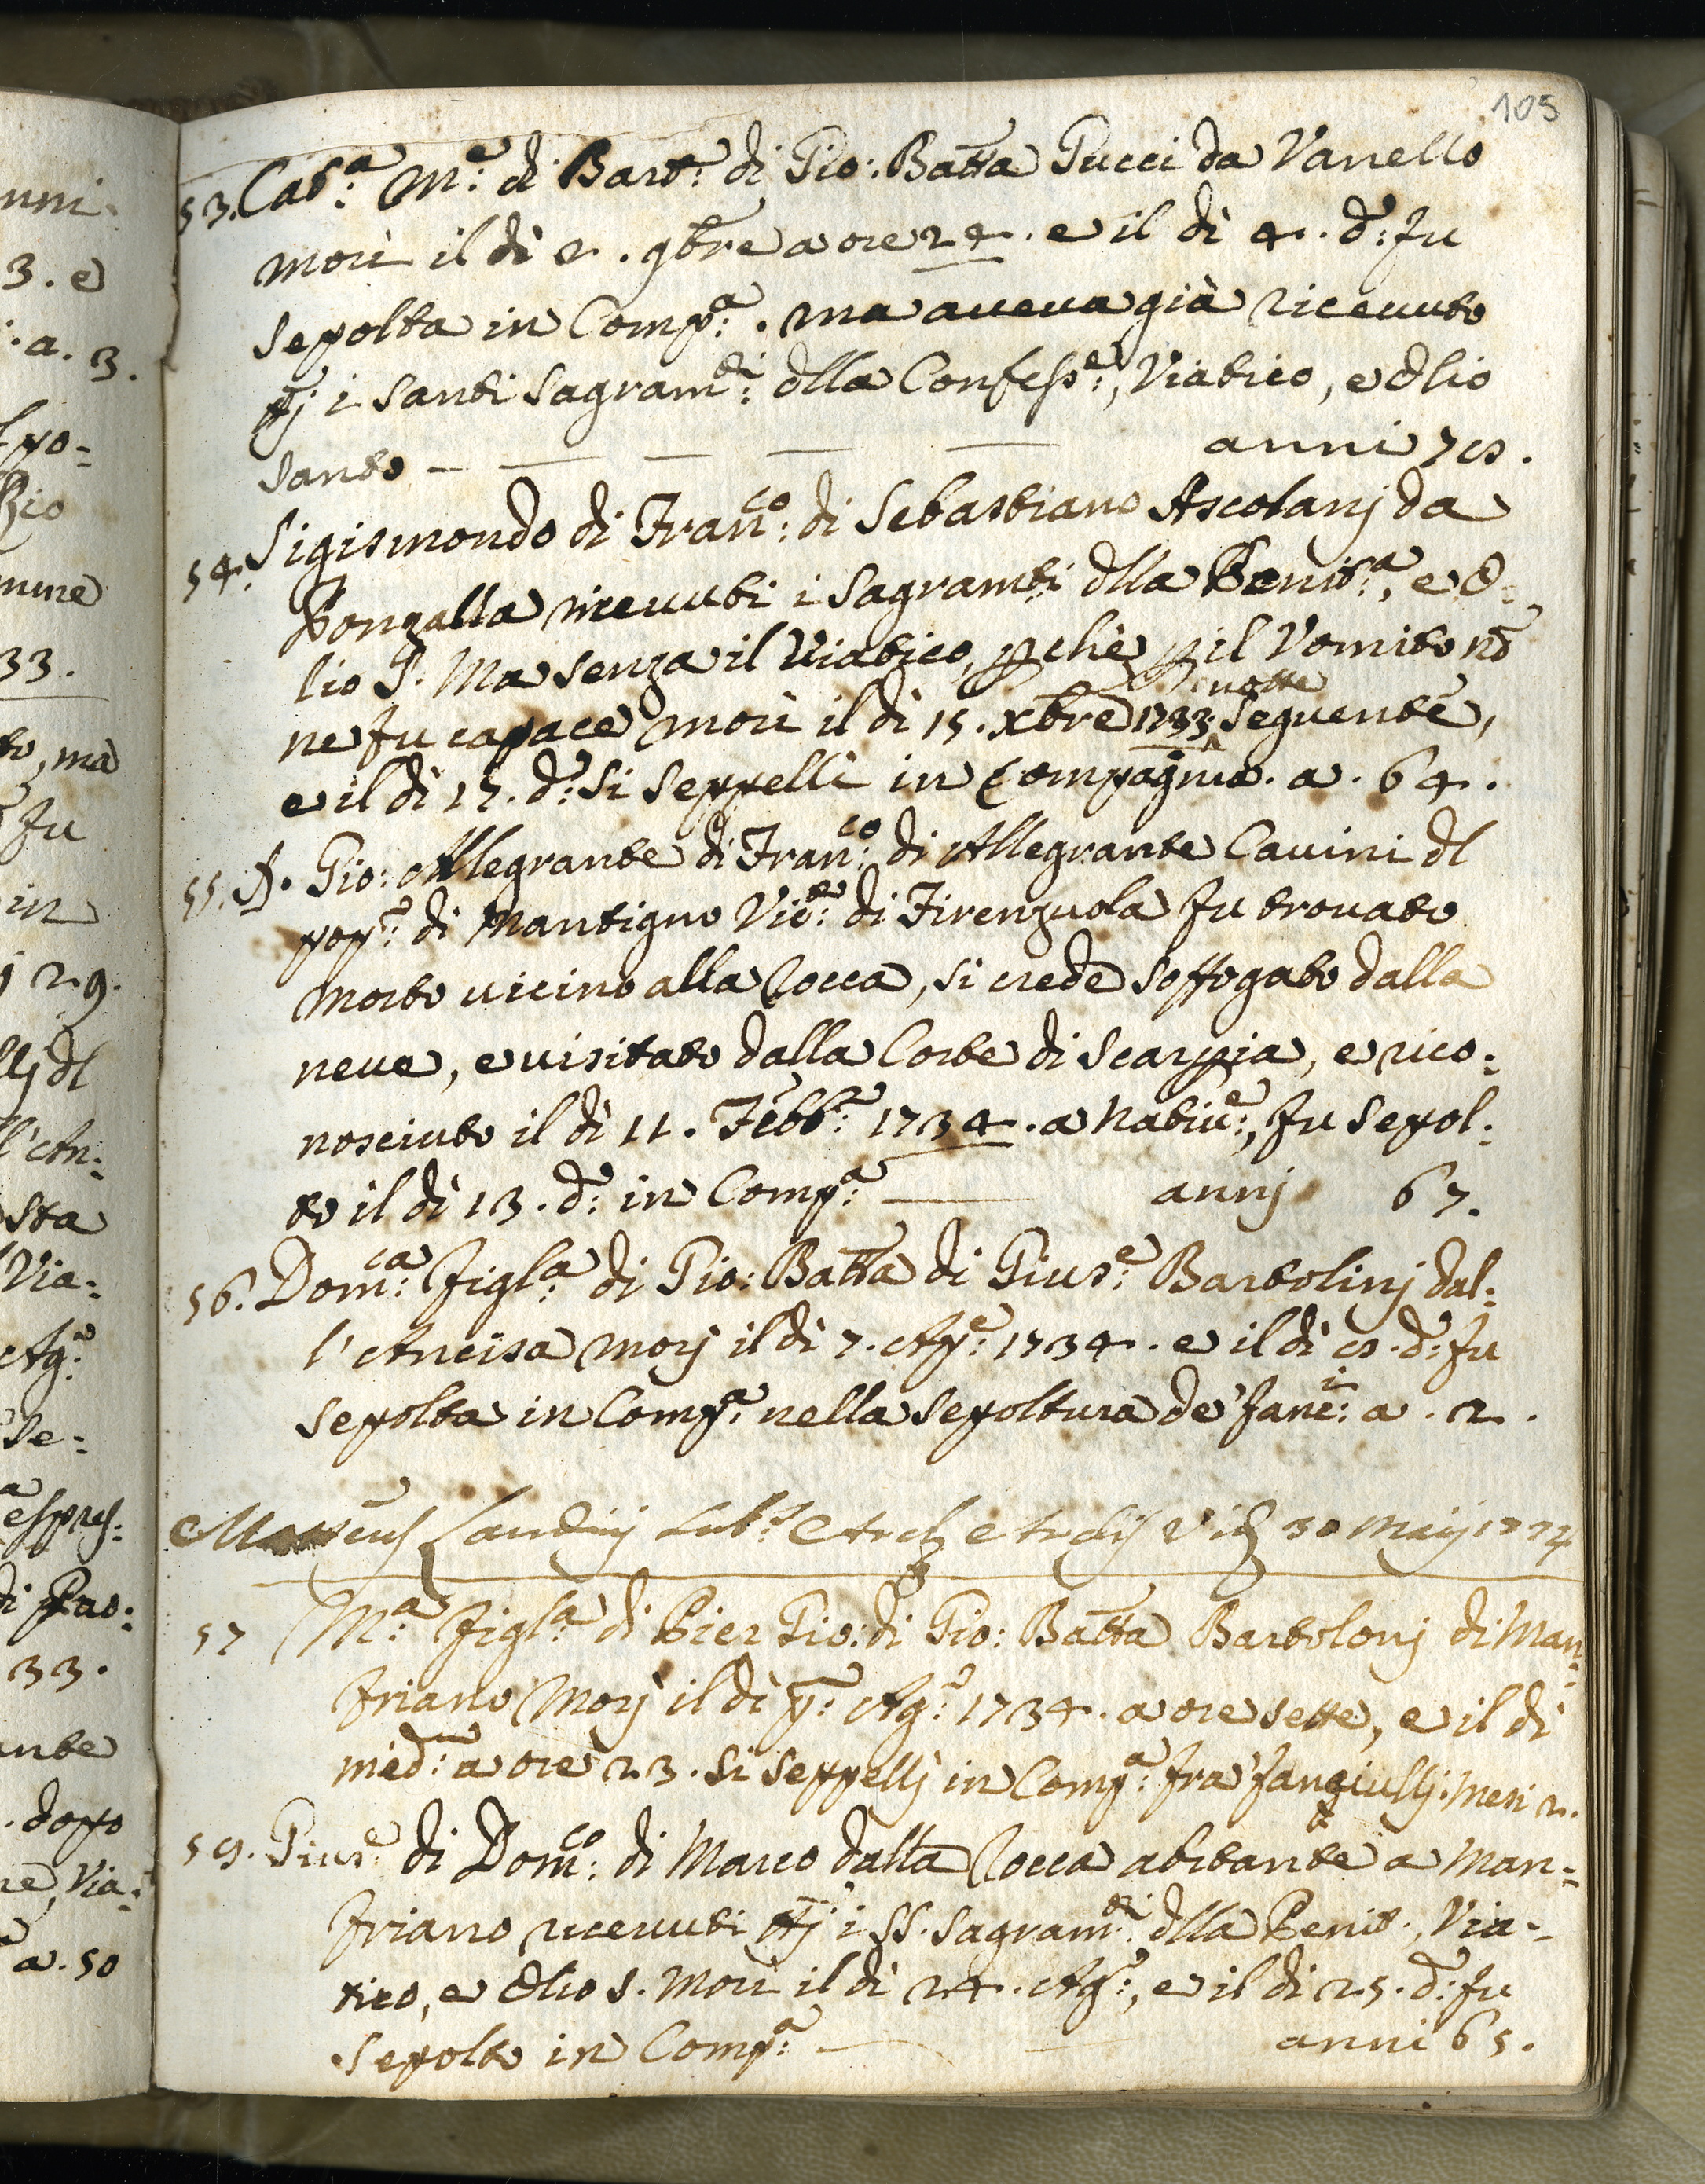 105
53. Cat:ª M:ª di Bart:º di Gio: Batta Pucci da Vanello
morì il dì 2. 9bre a ore 24. e il dì 4. dº: fu
sepolta in Comp:ª. ma aveva già ricevuto
ttj i santi sagram:ti dlla Confess:e, Viatico, e Olio
santo — — — — anni 78.
54. Sigismondo di Fran:co di Sebastiano Ascolanj da
Ronzalla ricevuti i sagramti dlla Penit:ª, e O=
lio S. Ma senza il Viatico, pchè p il Vomito nō
ne fu capace morì il dì 15. Xbre 1733. notte seguente,
e il dì 17. dº: si seppellì in Compagnia. a. 64.
55. D. Gio: Allegrante di Fran:co di Allegrante Cavini dl
pop:º di Mantigno Vic:to di Firenzuola fu trovato
morto vicino alla Rocca, si crede soffogato dalla
neve, e visitato dalla Corte di Scarpia, e rico=
nosciuto il dì 11. Febb:º 1734. a Nativ:e, fu sepol=
to il dì 13. dº: in Comp:ª — annj 67.
56. Dom:ca figl:ª di Gio: Batta di Gius:e Bartolinj dal=
l'Ancisa morj il dì 7. Ap:e 1734. e il dì 8. dº: fu
sepolta in Comp:ª nella sepoltura de' fanc:i a. 2.
Landinj 30 Maij
57 M:ª figl:ª di Pier Gio: di Gio: Batta Bartolonj di Man=
friano Morj il dì pº: Ag:º 1734. a ore sette, e il dì
med:º a ore 23. si seppellj in Comp:ª fra' fangiullj. Mesi 2.
58. Gius:e di Dom:co di Marco dalla Rocca abitante a Man=
friano ricevuti ttj i SS. sagram:ti dlla Penit., Via=
tico, e Olio S. Morì il dì 24. Ag:º, e il dì 25. dº: fu
sepolto in Comp:ª — — anni 65.
nni.
3. e
: a. 3.
mune
33.
to, ma
fu
in
29.
llj dl
l'An=
sta
Via=
Ag:º
se=
espres=
di Pao=
33.
ante
. dopo
Via=
a. 50